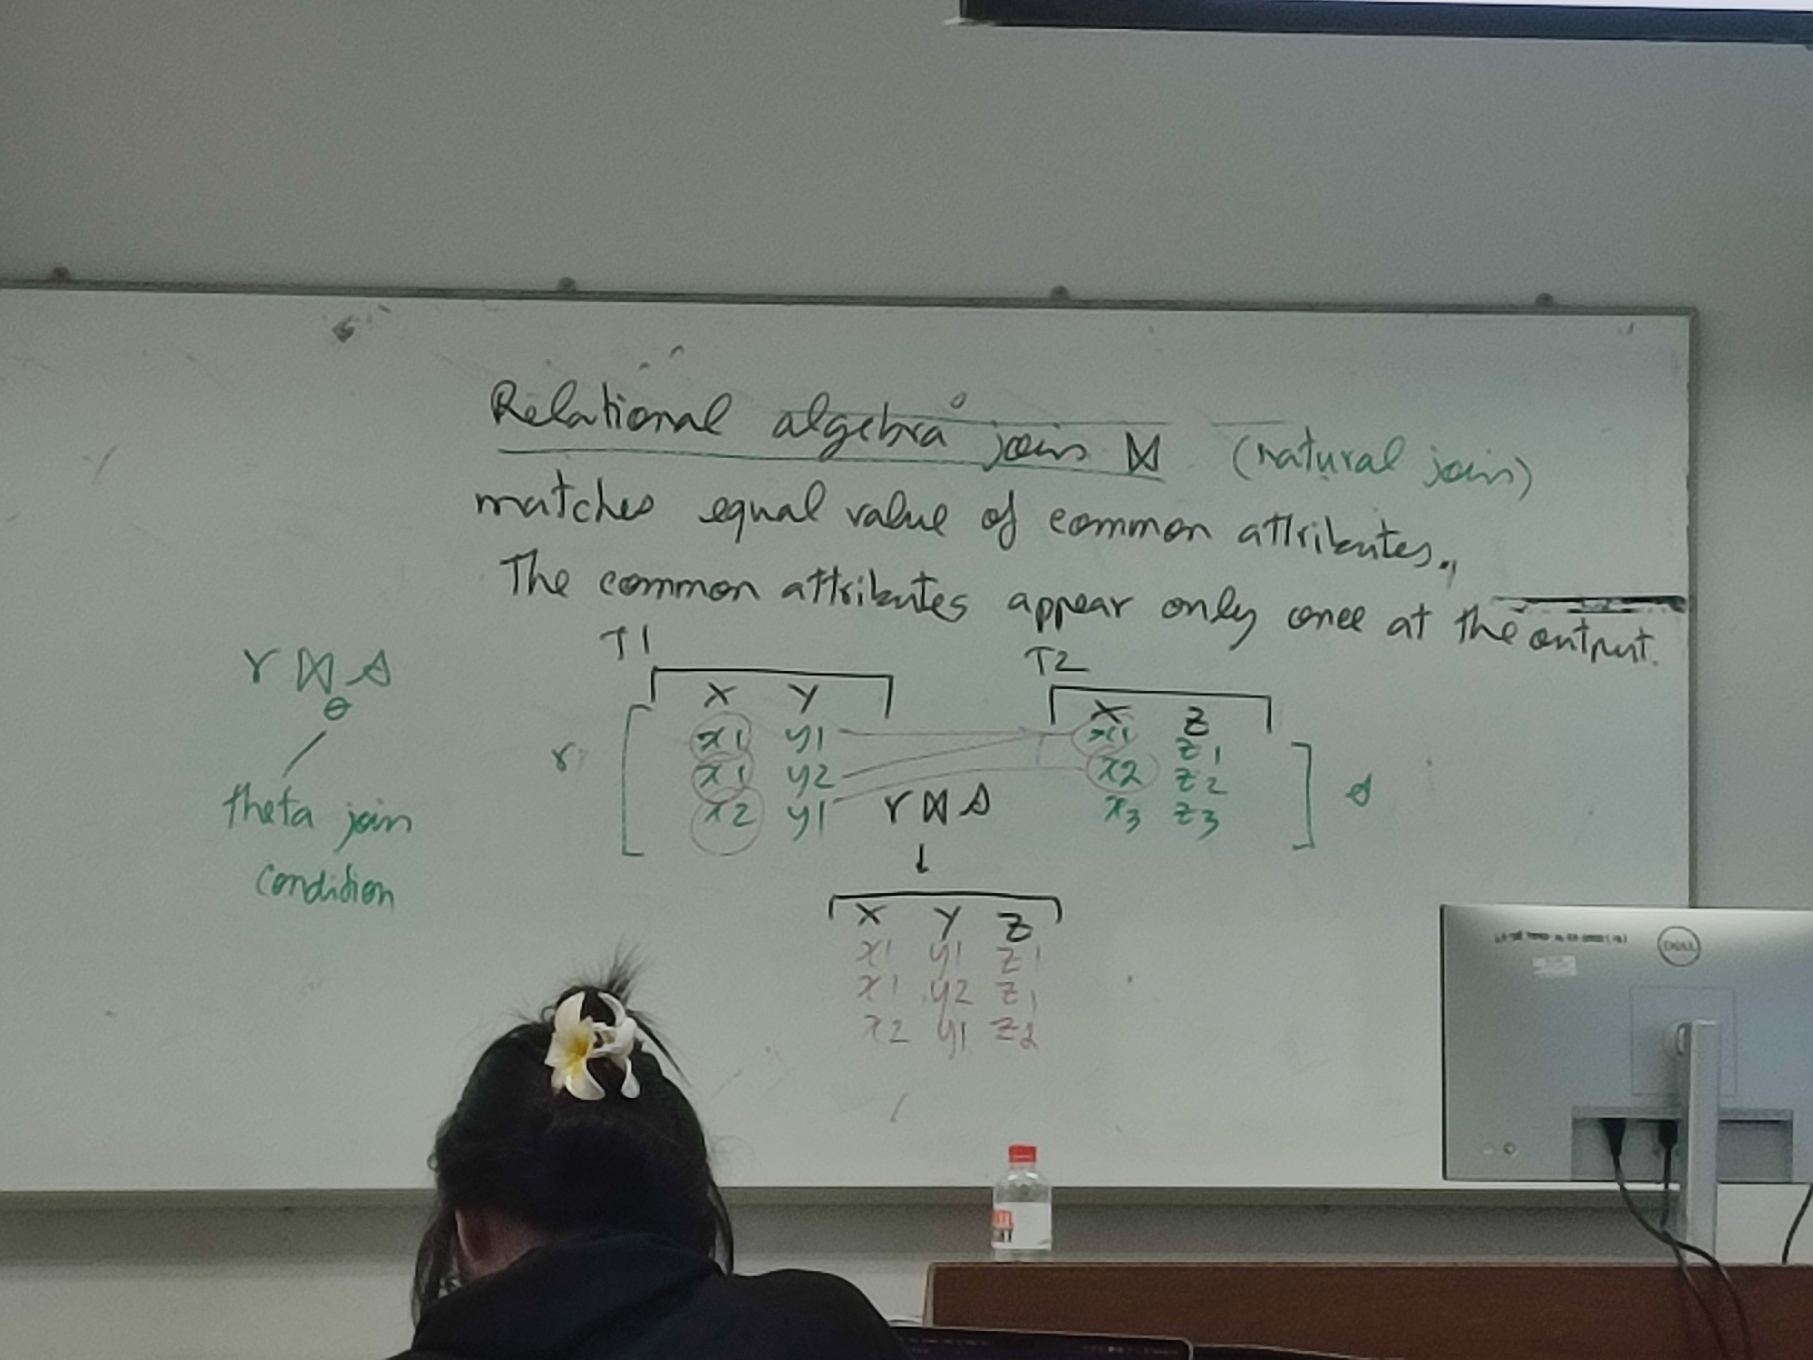 Relational algebra join ⋈ (natural join)
matches equal value of common attributes.
The common attributes appear only once at the output.
T1
T2
r ⋈ s
θ
theta join
condition
X Y
x1 y1
x1 y2
x2 y1
r
X Z
x1 z1
x2 z2
x3 z3
s
r ⋈ s
↓
X Y Z
x1 y1 z1
x1 y2 z1
x2 y1 z2
DELL